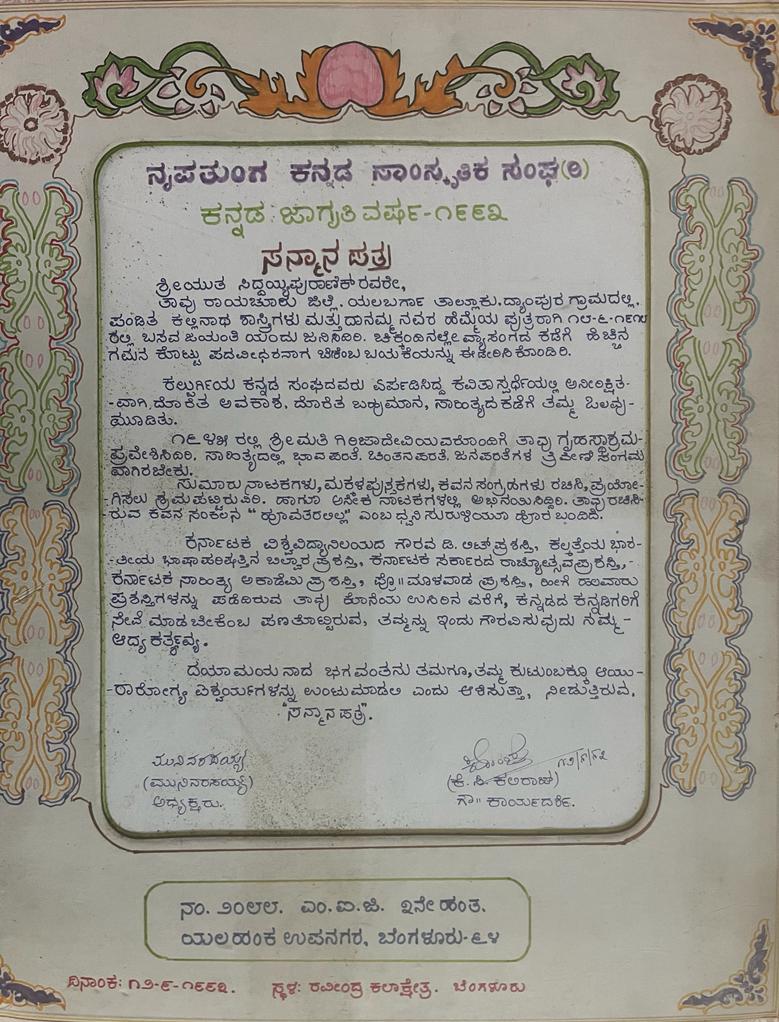 ನೃಪತುಂಗ ಕನ್ನಡ ಸಾಂಸ್ಕೃತಿಕ ಸಂಘ(ರಿ)
ಕನ್ನಡ ಜಾಗೃತಿ ವರ್ಷ-೧೯೯೩
ಸನ್ಮಾನ ಪತ್ರ
ಶ್ರೀಯುತ ಸಿದ್ದಯ್ಯಪುರಾಣಿಕ ರವರೇ,
ತಾವು ರಾಯಚೂರು ಜಿಲ್ಲೆ. ಯಲಬರ್ಗಾ ತಾಲ್ಲೂಕು. ದ್ಯಾಂಪುರ ಗ್ರಾಮದಲ್ಲಿ.
ಪಂಡಿತ ಕಲ್ಲಿನಾಥ ಶಾಸ್ತ್ರಿಗಳು ಮತ್ತು ದಾನಮ್ಮ ನವರ ಹೆಮ್ಮೆಯ ಪುತ್ರರಾಗಿ ೧೮-೬-೧೯೧೮
ರಲ್ಲಿ ಬಸವ ಜಯಂತಿ ಯಂದು ಜನಿಸಿದಿರಿ. ಚಿಕ್ಕಂದಿನಲ್ಲೇ ವ್ಯಾಸಂಗದ ಕಡೆಗೆ ಹೆಚ್ಚಿನ
ಗಮನ ಕೊಟ್ಟು ಪದವೀಧರನಾಗ ಬೇಕೆಂಬ ಬಯಕೆಯನ್ನು ಈಡೇರಿಸಿಕೊಂಡಿರಿ.
ಕಲ್ಬುರ್ಗಿಯ ಕನ್ನಡ ಸಂಘದವರು ಏರ್ಪಡಿಸಿದ್ದ ಕವಿತಾ ಸ್ಪರ್ಧೆಯಲ್ಲಿ ಅನೀರಿಕ್ಷಿತ-
-ವಾಗಿ ದೊರೆತ ಅವಕಾಶ. ದೊರೆತ ಬಹುಮಾನ, ಸಾಹಿತ್ಯದ ಕಡೆಗೆ ತಮ್ಮ ಒಲವು-
ಮೂಡಿತು.
ರಲ್ಲಿ ಶ್ರೀಮತಿ ಗಿರಿಜಾದೇವಿಯವರೊಂದಿಗೆ ತಾವು ಗೃಹಸ್ಥಾಶ್ರಮ-
ಪ್ರವೇಶಿಸಿದಿರಿ. ಸಾಹಿತ್ಯದಲ್ಲಿ ಭಾವಪರತೆ. ಚಿಂತನಪರತೆ. ಜನಪರತೆಗಳ ತ್ರಿವೇಣಿ ಸಂಗಮ
ವಾಗಿರಬೇಕು.
ಸುಮಾರು ನಾಟಕಗಳು, ಮಕ್ಕಳಪುಸ್ತಕಗಳು, ಕವನ ಸಂಗ್ರಹಗಳು ರಚಿಸಿ, ಪ್ರಯೋ-
-ಗಿಸಲು ಶ್ರಮಪಟ್ಟಿರುವಿರಿ. ಹಾಗೂ ಅನೇಕ ನಾಟಕಗಳಲ್ಲಿ ಅಭಿನಯಿಸಿದ್ದಿರಿ. ತಾವು ರಚಿಸಿ-
ರುವ ಕವನ ಸಂಕಲನ " ಹೂವತರಲಿಲ್ಲ" ಎಂಬ ಧ್ವನಿ ಸುರುಳಿಯೂ ಹೊರ ಬಂದಿದೆ.
ಕರ್ನಾಟಕ ವಿಶ್ವವಿದ್ಯಾನಿಲಯದ ಗೌರವ ಡಿ. ಲಿಟ್ ಪ್ರಶಸ್ತಿ, ಕಲ್ಕತ್ತೆಯ ಭಾರ-
-ತೀಯ ಭಾಷಾ ಪರಿಷತ್ತಿನ ಬಿಲ್ವಾರ ಪ್ರಶಸ್ತಿ, ಕರ್ನಾಟಕ ಸರ್ಕಾರದ ರಾಜ್ಯೋತ್ಸವ ಪ್ರಶಸ್ತಿ,-
ಕರ್ನಾಟಕ ಸಾಹಿತ್ಯ ಅಕಾಡೆಮಿ ಪ್ರಶಸ್ತಿ, ಪ್ರೊ॥ ಮೂಳವಾಡ ಪ್ರಶಸ್ತಿ, ಹೀಗೆ ಹಲವಾರು
ಪ್ರಶಸ್ತಿಗಳನ್ನು ಪಡೆದಿರುವ ತಾವು ಕೊನೆಯ ಉಸಿರಿನ ವರೆಗೆ, ಕನ್ನಡದ ಕನ್ನಡಿಗರಿಗೆ
ಸೇವೆ ಮಾಡ ಬೇಕೆಂಬ ಪಣತೊಟ್ಟಿರುವ, ತಮ್ಮನ್ನು ಇಂದು ಗೌರವಿಸುವುದು ನಮ್ಮ-
ಆದ್ಯ ಕರ್ತವ್ಯ.
ದಯಾಮಯನಾದ ಭಗವಂತನು ತಮಗೂ, ತಮ್ಮ ಕುಟುಂಬಕ್ಕೂ ಆಯು-
-ರಾರೋಗ್ಯ ಐಶ್ವರ್ಯಗಳನ್ನು ಉಂಟುಮಾಡಲಿ ಎಂದು ಆಶಿಸುತ್ತಾ, ನೀಡುತ್ತಿರುವ.
"ಸನ್ಮಾನ ಪತ್ರ".
ಮುನಿನರಸಯ್ಯ
(ಮುನಿನರಸಯ್ಯ)
ಅಧ್ಯಕ್ಷರು.
೧೨/೯/೯೩
(ಕೆ. ಸಿ. ಕಲಿರಾಜ್)
ಗೌ॥ ಕಾರ್ಯದರ್ಶಿ.
ನಂ. ೨೦೮೮. ಎಂ.ಐ.ಜಿ. ೩ನೇ ಹಂತ.
ಯಲಹಂಕ ಉಪನಗರ, ಬೆಂಗಳೂರು-೬೪
ದಿನಾಂಕ: ೧೨-೯-೧೯೯೩. ಸ್ಥಳ: ರವೀಂದ್ರ ಕಲಾಕ್ಷೇತ್ರ. ಬೆಂಗಳೂರು